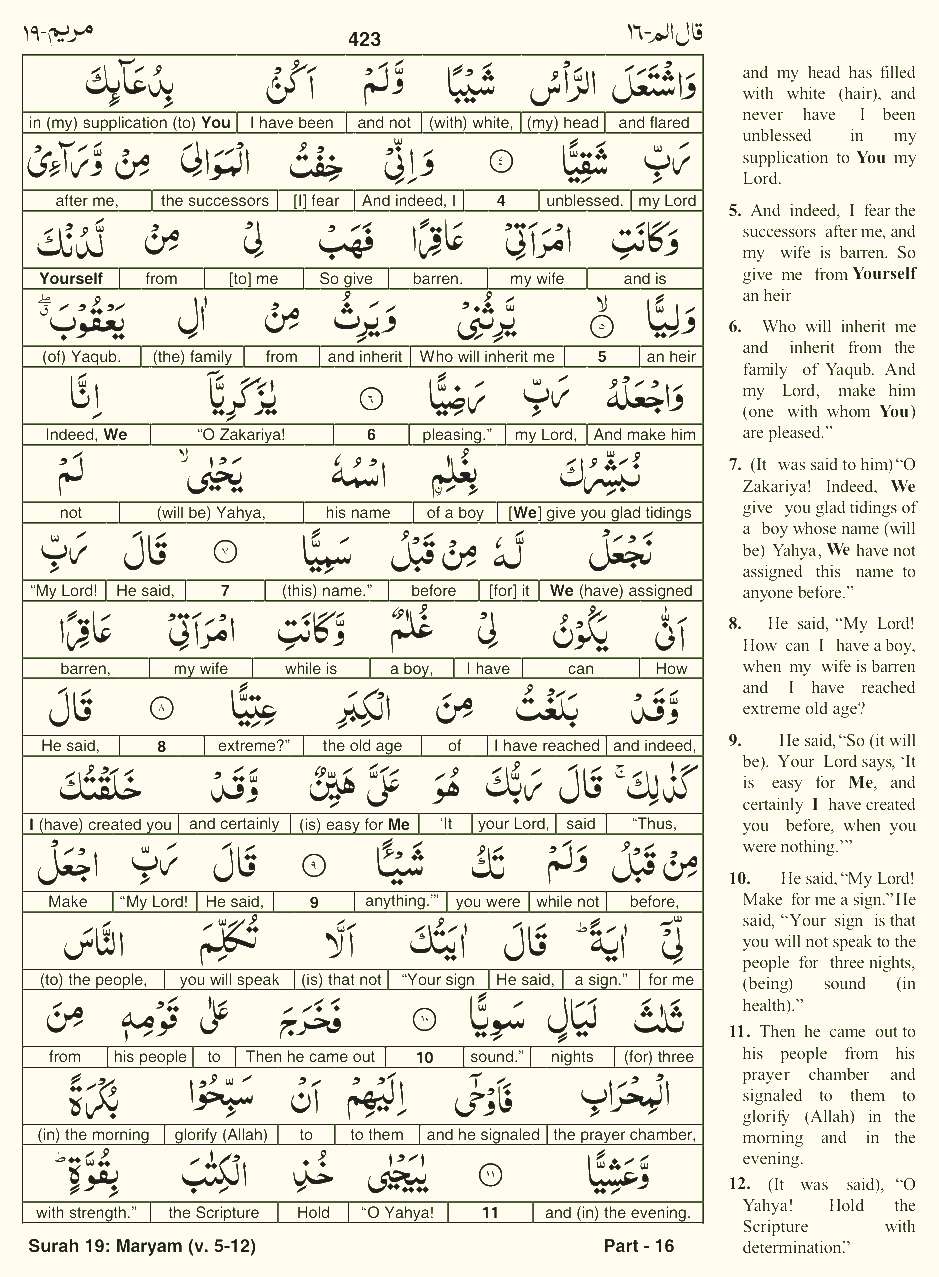 مريم-١٩
423
قال الم-١٦
وَاشْتَعَلَ الرَّأْسُ شَيْبًا وَّلَمْ اَكُنْۢ بِدُعَآئِكَ
in (my) supplication (to) You I have been and not (with) white, (my) head and flared
رَبِّ شَقِيًّا ﴿٤﴾ وَاِنِّيْ خِفْتُ الْمَوَالِيَ مِنْ وَّرَآءِيْ
after me, the successors [I] fear And indeed, I 4 unblessed. my Lord
وَكَانَتِ امْرَاَتِيْ عَاقِرًا فَهَبْ لِيْ مِنْ لَّدُنْكَ
Yourself from [to] me So give barren. my wife and is
وَلِيًّا ﴿٥﴾ يَّرِثُنِيْ وَيَرِثُ مِنْ اٰلِ يَعْقُوْبَ
(of) Yaqub. (the) family from and inherit Who will inherit me 5 an heir
وَاجْعَلْهُ رَبِّ رَضِيًّا ﴿٦﴾ يٰزَكَرِيَّآ اِنَّا
Indeed, We “O Zakariya! 6 pleasing.” my Lord, And make him
نُبَشِّرُكَ بِغُلٰمِ ۨاسْمُهٗ يَحْيٰى لَمْ
not (will be) Yahya, his name of a boy [We] give you glad tidings
نَجْعَلْ لَّهٗ مِنْ قَبْلُ سَمِيًّا ﴿٧﴾ قَالَ رَبِّ
“My Lord! He said, 7 (this) name.” before [for] it We (have) assigned
اَنّٰى يَكُوْنُ لِيْ غُلٰمٌ وَّكَانَتِ امْرَاَتِيْ عَاقِرًا
barren, my wife while is a boy, I have can How
وَّقَدْ بَلَغْتُ مِنَ الْكِبَرِ عِتِيًّا ﴿٨﴾ قَالَ
He said, 8 extreme?” the old age of I have reached and indeed,
كَذٰلِكَ ۚ قَالَ رَبُّكَ هُوَ عَلَيَّ هَيِّنٌ وَّقَدْ خَلَقْتُكَ
I (have) created you and certainly (is) easy for Me ‘It your Lord, said “Thus,
مِنْ قَبْلُ وَلَمْ تَكُ شَيْئًا ﴿٩﴾ قَالَ رَبِّ اجْعَلْ
Make “My Lord! He said, 9 anything.’” you were while not before,
لِّيْٓ اٰيَةً ۭ قَالَ اٰيَتُكَ اَلَّا تُكَلِّمَ النَّاسَ
(to) the people, you will speak (is) that not “Your sign He said, a sign.” for me
ثَلٰثَ لَيَالٍ سَوِيًّا ﴿١٠﴾ فَخَرَجَ عَلٰى قَوْمِهٖ مِنَ
from his people to Then he came out 10 sound.” nights (for) three
الْمِحْرَابِ فَاَوْحٰٓى اِلَيْهِمْ اَنْ سَبِّحُوْا بُكْرَةً
(in) the morning glorify (Allah) to to them and he signaled the prayer chamber,
وَّعَشِيًّا ﴿١١﴾ يٰيَحْيٰى خُذِ الْكِتٰبَ بِقُوَّةٍ ۭ
with strength.” the Scripture Hold “O Yahya! 11 and (in) the evening.
and my head has filled
with white (hair), and
never have I been
unblessed in my
supplication to You my
Lord.
5. And indeed, I fear the
successors after me, and
my wife is barren. So
give me from Yourself
an heir
6. Who will inherit me
and inherit from the
family of Yaqub. And
my Lord, make him
(one with whom You)
are pleased.”
7. (It was said to him) “O
Zakariya! Indeed, We
give you glad tidings of
a boy whose name (will
be) Yahya, We have not
assigned this name to
anyone before.”
8. He said, “My Lord!
How can I have a boy,
when my wife is barren
and I have reached
extreme old age?
9. He said, “So (it will
be). Your Lord says, ‘It
is easy for Me, and
certainly I have created
you before, when you
were nothing.’”
10. He said, “My Lord!
Make for me a sign.” He
said, “Your sign is that
you will not speak to the
people for three nights,
(being) sound (in
health).”
11. Then he came out to
his people from his
prayer chamber and
signaled to them to
glorify (Allah) in the
morning and in the
evening.
12. (It was said), “O
Yahya! Hold the
Scripture with
determination.”
Surah 19: Maryam (v. 5-12)
Part - 16